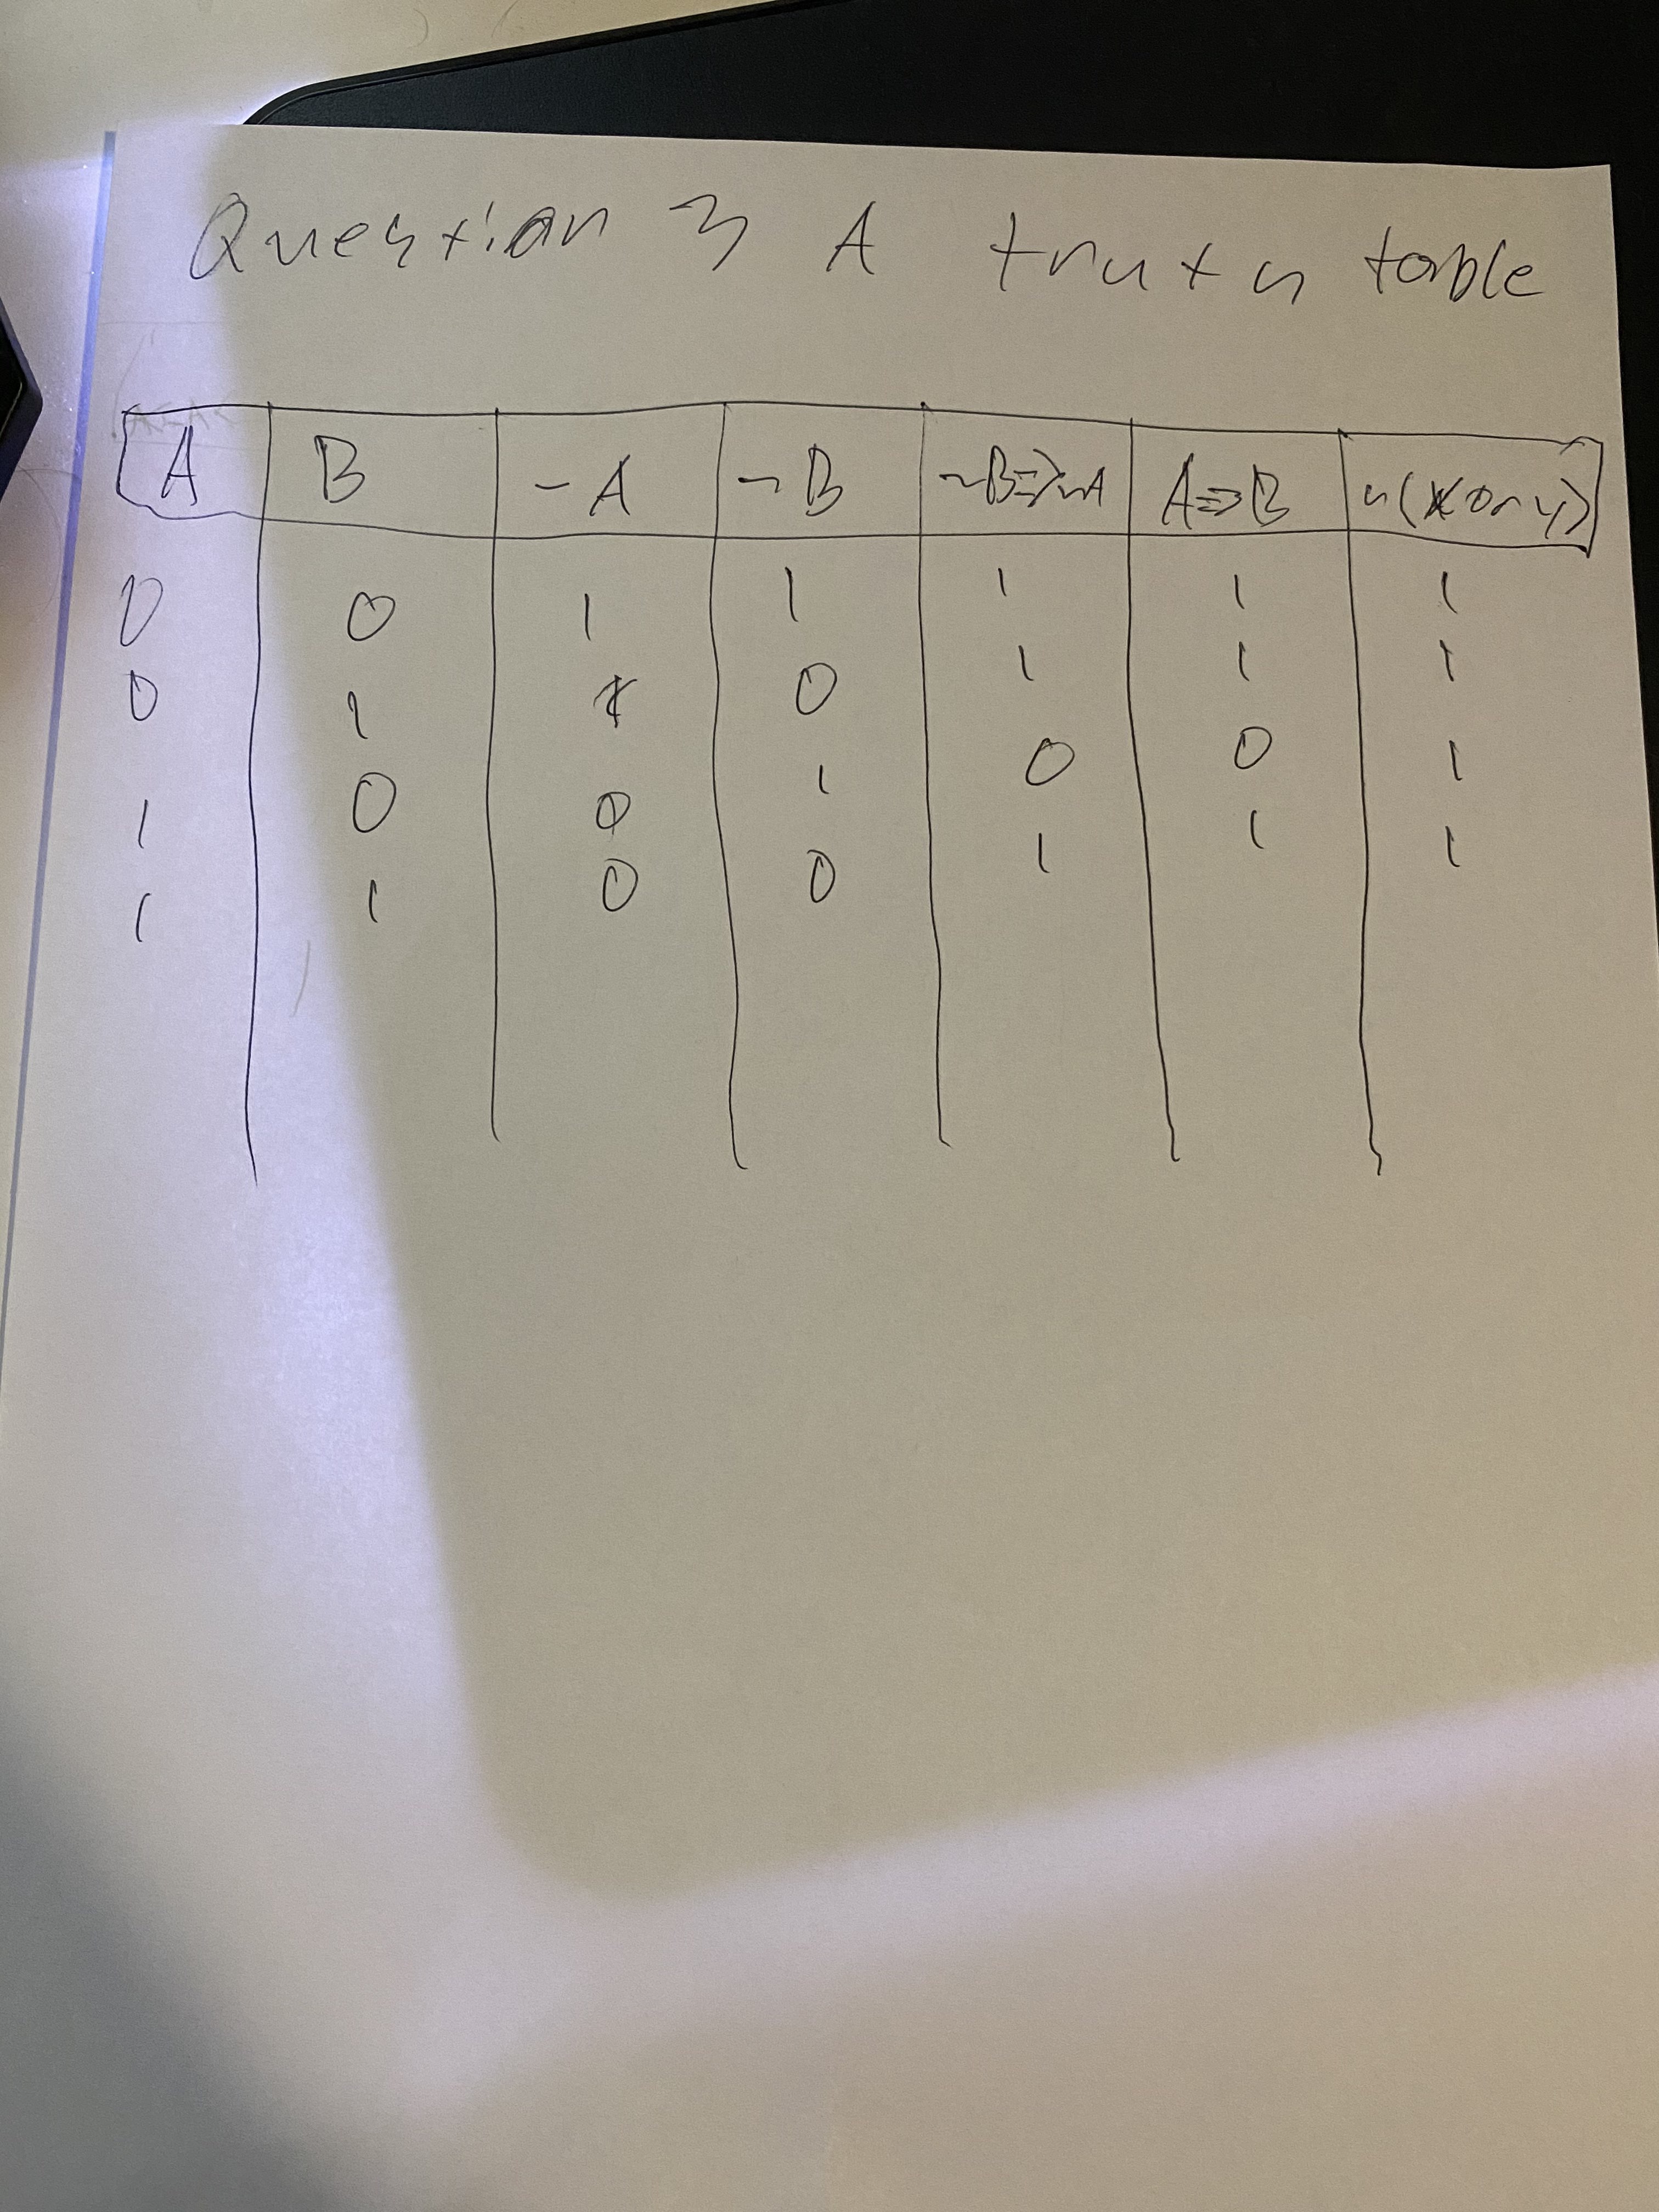 Question 3 A truth table
A B ¬A ¬B ¬B⇒¬A A⇒B ¬(x or y)
0 0 1 1 1 1 1
0 1 1 0 1 1 1
1 0 0 1 0 0 1
1 1 0 0 1 1 1